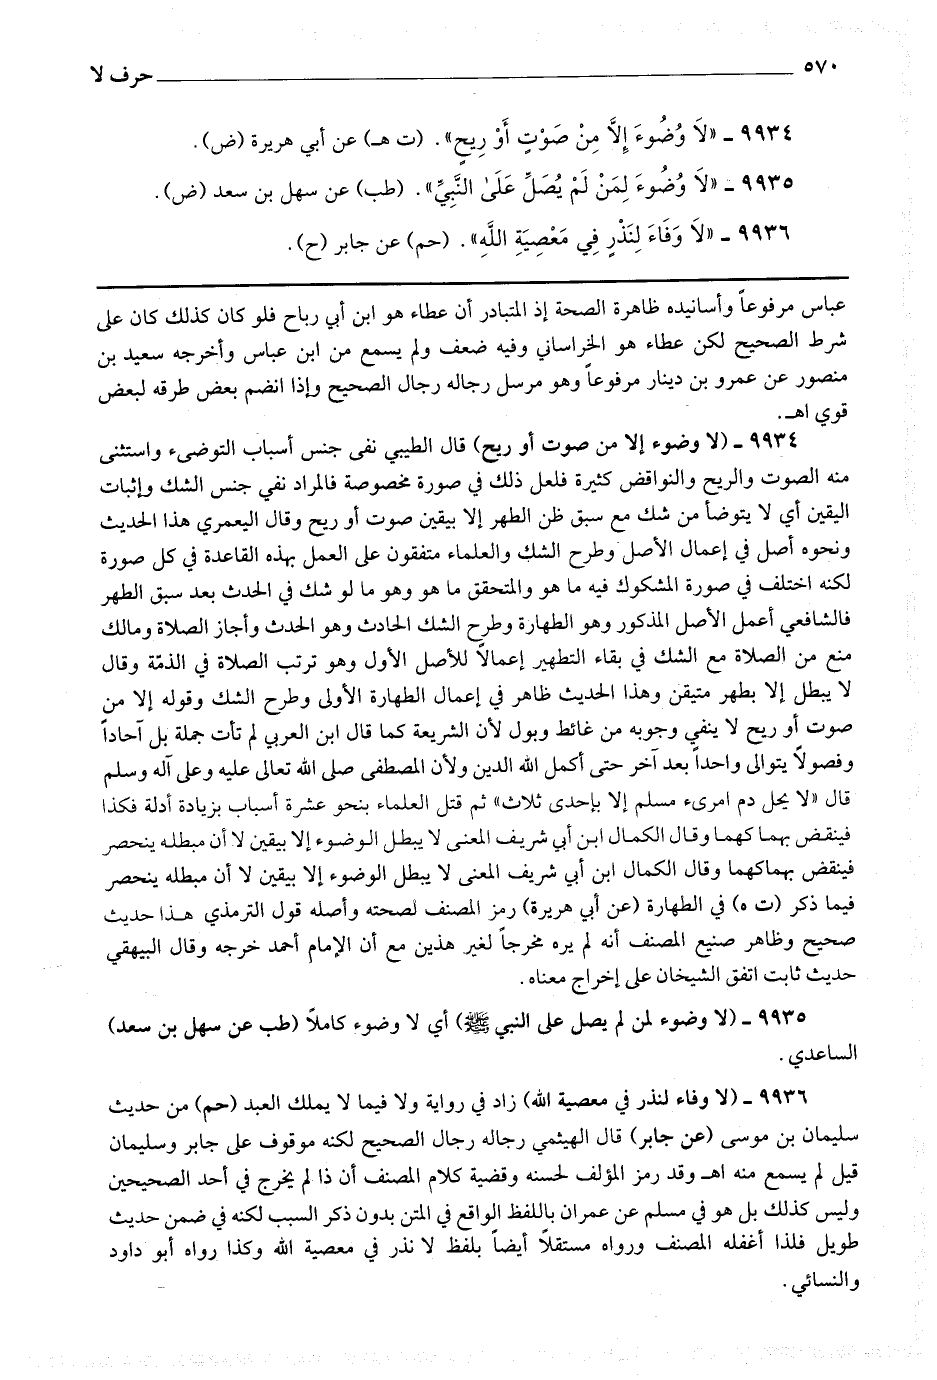 ٥٧٠ ــــــــ حرف لا
٩٩٣٤ ـ «لَا وُضُوءَ إِلَّا مِنْ صَوْتٍ أَوْ رِيحٍ». (ت هـ) عن أبي هريرة (ض).
٩٩٣٥ ـ «لَا وُضُوءَ لِمَنْ لَمْ يُصَلِّ عَلَىٰ النَّبِيِّ». (طب) عن سهل بن سعد (ض).
٩٩٣٦ ـ «لَا وَفَاءَ لِنَذْرٍ فِي مَعْصِيَةِ اللَّهِ». (حم) عن جابر (ح).
عباس مرفوعاً وأسانيده ظاهرة الصحة إذ المتبادر أن عطاء هو ابن أبي رباح فلو كان كذلك كان على
شرط الصحيح لكن عطاء هو الخراساني وفيه ضعف ولم يسمع من ابن عباس وأخرجه سعيد بن
منصور عن عمرو بن دينار مرفوعاً وهو مرسل رجاله رجال الصحيح وإذا انضم بعض طرقه لبعض
قوي اهـ.
٩٩٣٤ ـ (لا وضوء إلا من صوت أو ريح) قال الطيبي نفى جنس أسباب التوضىء واستثنى
منه الصوت والريح والنواقض كثيرة فلعل ذلك في صورة مخصوصة فالمراد نفي جنس الشك وإثبات
اليقين أي لا يتوضأ من شك مع سبق ظن الطهر إلا بيقين صوت أو ريح وقال اليعمري هذا الحديث
ونحوه أصل في إعمال الأصل وطرح الشك والعلماء متفقون على العمل بهذه القاعدة في كل صورة
لكنه اختلف في صورة المشكوك فيه ما هو والمتحقق ما هو وهو ما لو شك في الحدث بعد سبق الطهر
فالشافعي أعمل الأصل المذكور وهو الطهارة وطرح الشك الحادث وهو الحدث وأجاز الصلاة ومالك
منع من الصلاة مع الشك في بقاء التطهير إعمالاً للأصل الأول وهو ترتب الصلاة في الذمّة وقال
لا يبطل إلا بطهر متيقن وهذا الحديث ظاهر في إعمال الطهارة الأولى وطرح الشك وقوله إلا من
صوت أو ريح لا ينفي وجوبه من غائط وبول لأن الشريعة كما قال ابن العربي لم تأت جملة بل آحاداً
وفصولاً يتوالى واحداً بعد آخر حتى أكمل الله الدين ولأن المصطفى صلى الله تعالى عليه وعلى آله وسلم
قال «لا يحل دم امرىء مسلم إلا بإحدى ثلاث» ثم قتل العلماء بنحو عشرة أسباب بزيادة أدلة فكذا
فينقض بهما كهما وقال الكمال ابن أبي شريف المعنى لا يبطل الوضوء إلا بيقين لا أن مبطله ينحصر
فينقض بهماكهما وقال الكمال ابن أبي شريف المعنى لا يبطل الوضوء إلا بيقين لا أن مبطله ينحصر
فيما ذكر (ت ه) في الطهارة (عن أبي هريرة) رمز المصنف لصحته وأصله قول الترمذي هذا حديث
صحيح وظاهر صنيع المصنف أنه لم يره مخرجاً لغير هذين مع أن الإمام أحمد خرجه وقال البيهقي
حديث ثابت اتفق الشيخان على إخراج معناه.
٩٩٣٥ ـ (لا وضوء لمن لم يصل على النبي ﷺ) أي لا وضوء كاملاً (طب عن سهل بن سعد)
الساعدي.
٩٩٣٦ ـ (لا وفاء لنذر في معصية الله) زاد في رواية ولا فيما لا يملك العبد (حم) من حديث
سليمان بن موسى (عن جابر) قال الهيثمي رجاله رجال الصحيح لكنه موقوف على جابر وسليمان
قيل لم يسمع منه اهـ وقد رمز المؤلف لحسنه وقضية كلام المصنف أن ذا لم يخرج في أحد الصحيحين
وليس كذلك بل هو في مسلم عن عمران باللفظ الواقع في المتن بدون ذكر السبب لكنه في ضمن حديث
طويل فلذا أغفله المصنف ورواه مستقلاً أيضاً بلفظ لا نذر في معصية الله وكذا رواه أبو داود
والنسائي.